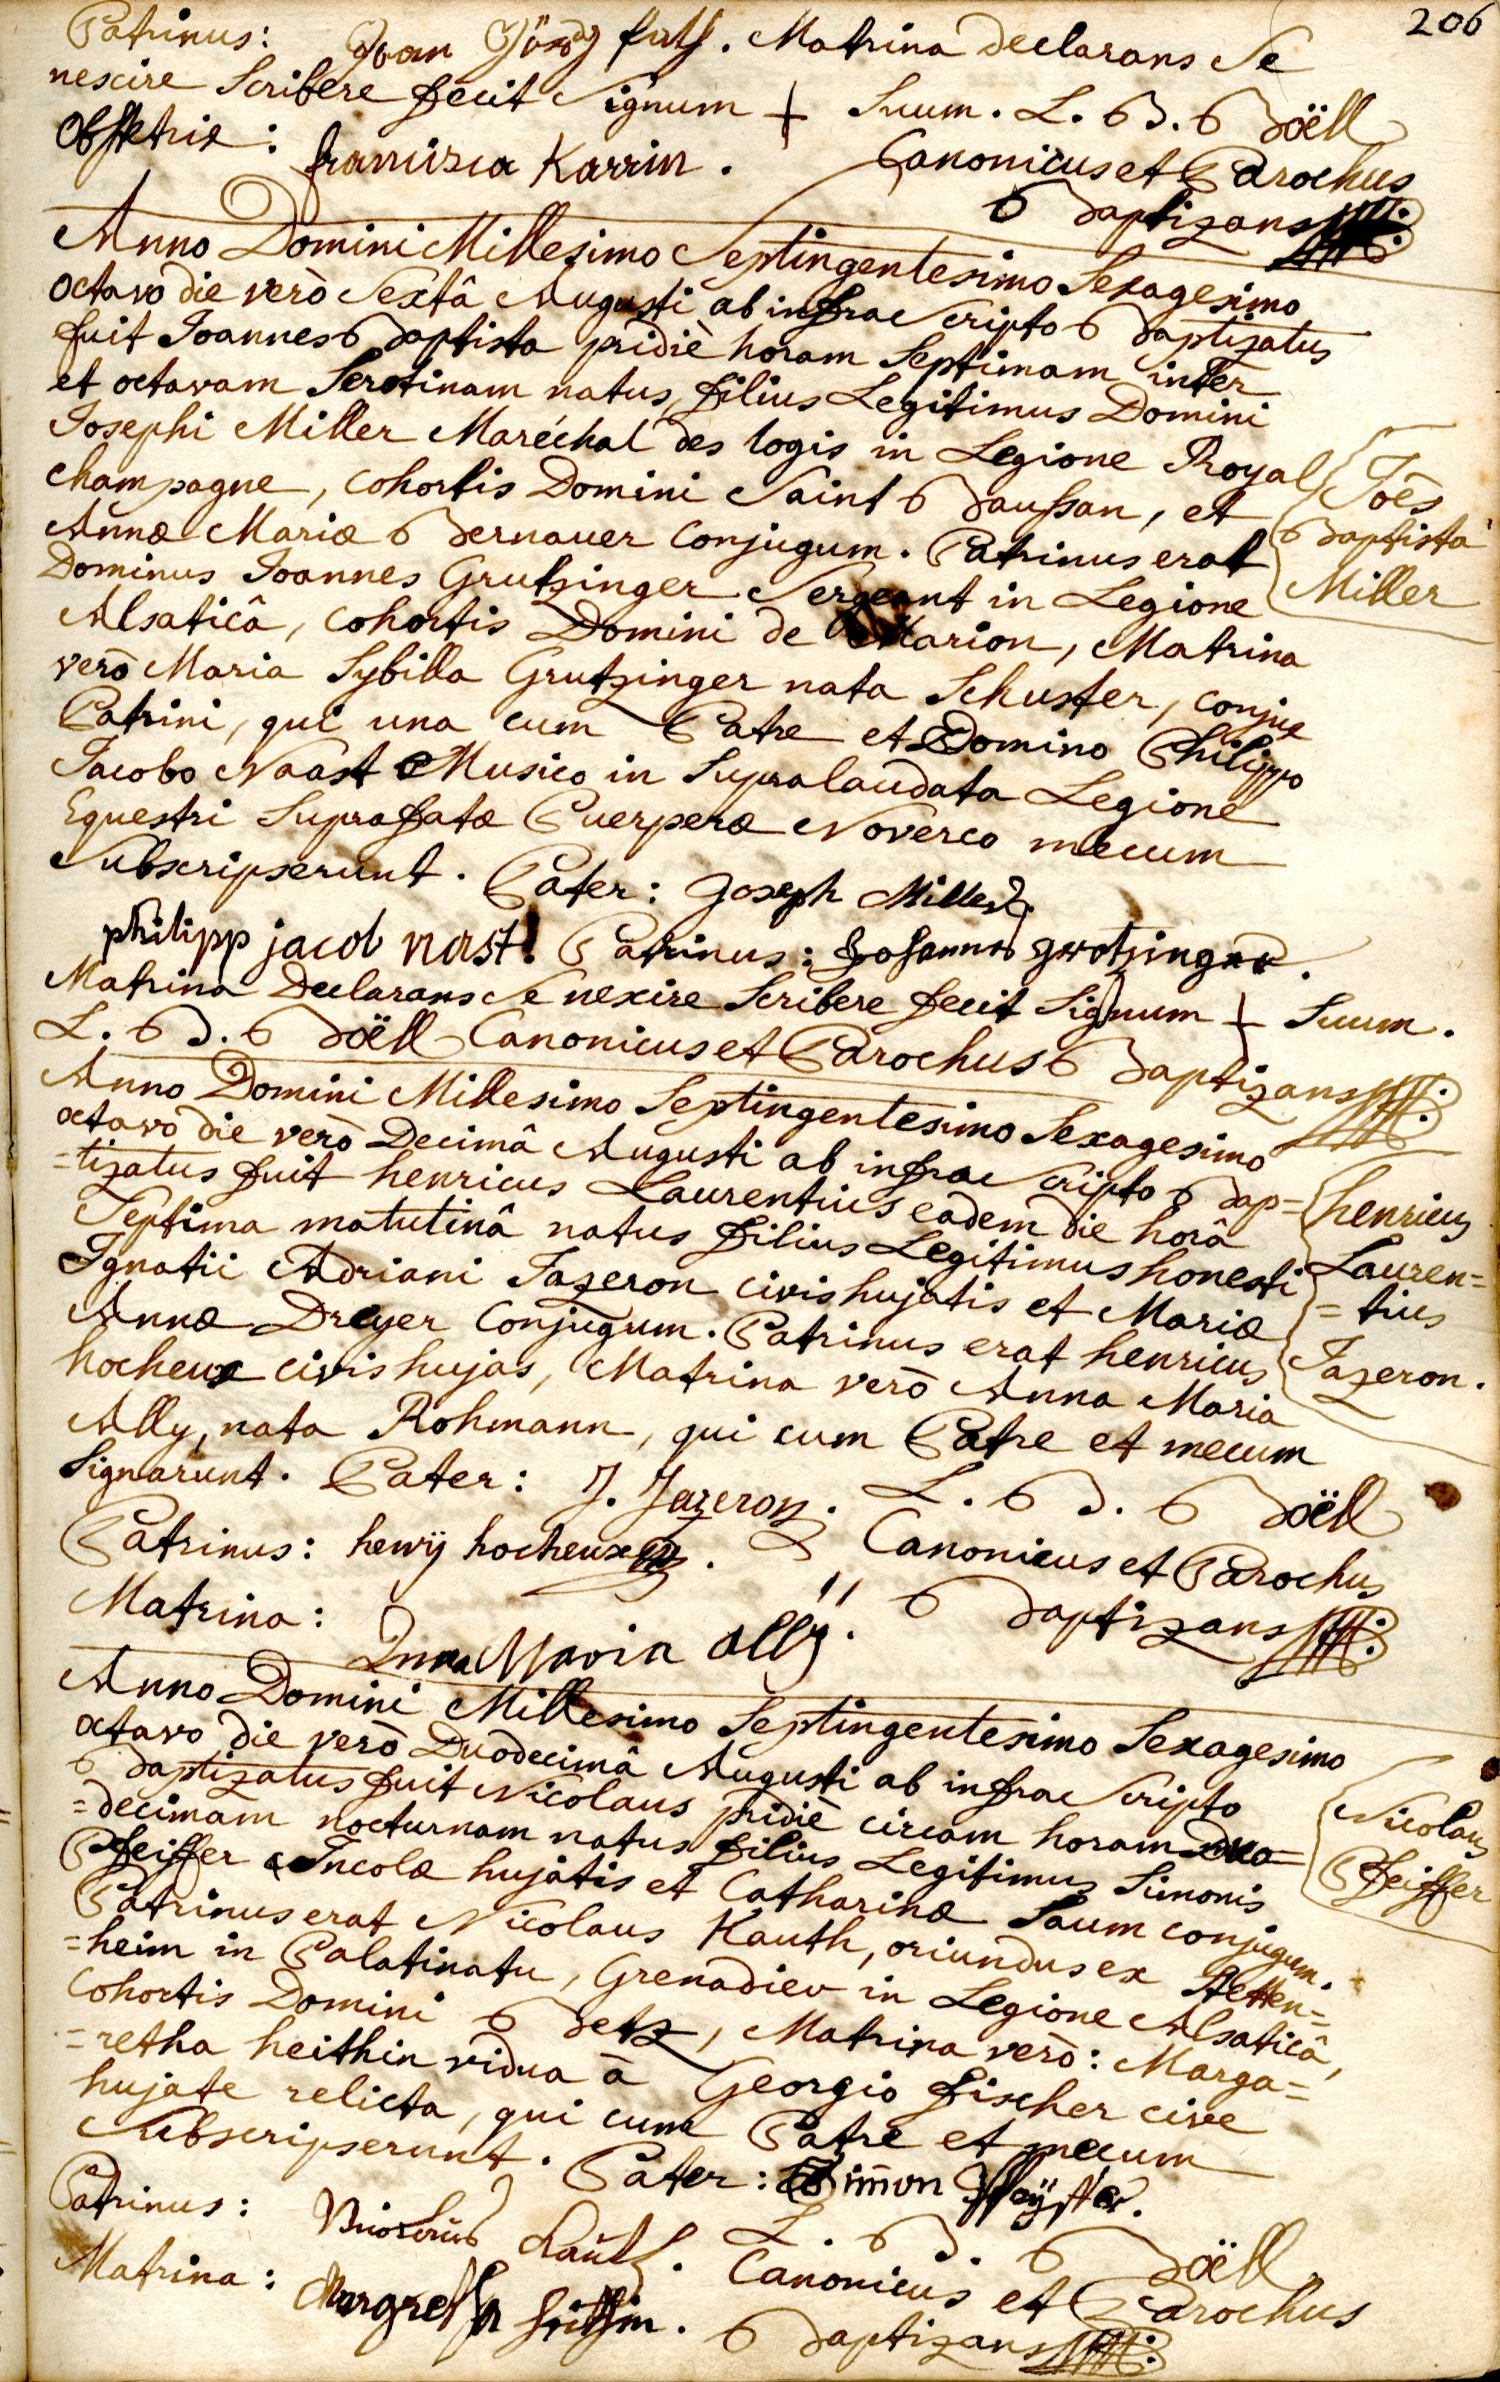 206
Patrinus: Joan Görg . Matrina declarans Se
nescire Scribere fecit Signum + Suum. L. B. Boëll
Obstetrix: francisca Karrin. Canonicus et Parochus
Baptizans
Anno Domini Millesimo Septingentesimo Sexagesimo
octavo die verò Sextâ Augusti ab infra Scripto Baptizatus
fuit Joannes Baptista pridiè horam Septimam inter
et octavam Serotinam natus, filius Legitimus Domini
Josephi Miller Maréchal des logis in Legione Royal
Champagne, cohortis Domini Saint Baussan, et
Annæ Mariæ Bernauer Conjugum. Patrinus erat
Dominus Joannes Grutzinger Sergeant in Legione
Alsaticâ, cohortis Domini de Marion, Matrina
verò Maria Sybilla Grutzinger nata Schuster, conjux
Patrini, qui una cum Patre et Domino Philippo
Jacobo Naast Musico in Supralaudata Legione
Equestri Suprafatæ Puerperæ Noverco mecum
Subscripserunt. Pater: Joseph Miller.
philipp jacob nast! Patrinus: Johannes grotzinger.
Matrina Declarans Se nexire Scribere fecit Signum + Suum.
L. B. Boëll Canonicus et Parochus Baptizans
Joēs
Baptista
Miller
Anno Domini Millesimo Septingentesimo Sexagesimo
octavo die verò Decimâ Augusti ab infra Scripto Bap=
=tizatus fuit henricus Laurentius eâdem die horâ
Septima matutinâ natus filius Legitimus honesti
Ignatii Adriani Jazeron civis hujatis et Mariæ
Annæ Dreyer Conjugum. Patrinus erat henricus
hocheux civis hujas, Matrina verò Anna Maria
Ally, nata Rohmann, qui cum Patre et mecum
Signarunt. Pater: J. Jazeron. L. B. Boëll
Patrinus: henrÿ hocheux. Canonicus et Parochus
Matrina: Anna Maria allÿ. Baptizans
henricus
Lauren=
=tius
Jazeron.
Anno Domini Millesimo Septingentesimo Sexagesimo
octavo die verò Duodecimâ Augusti ab infra Scripto
Baptizatus fuit Nicolaus pridiè circam horam duo=
=decimam nocturnam natus filius Legitimus Simonis
Pfeiffer Incolæ hujatis et Catharinæ Saum conjugum.
Patrinus erat Nicolaus Kauth, oriundus ex Stetten=
=heim in Palatinatu, Grenadier in Legione Alsaticâ,
Cohortis Domini Betz, Matrina verò: Marga=
=retha heithin vidua à Georgio fischer cive
hujate relicta, qui cum Patre et mecum
Subscripserunt. Pater: Simon Pfeÿffer.
Patrinus: Nicolaus Kauth. L. B. Boëll
Matrina: Margretha . Canonicus et Parochus
Baptizans
Nicolaus
Pfeiffer